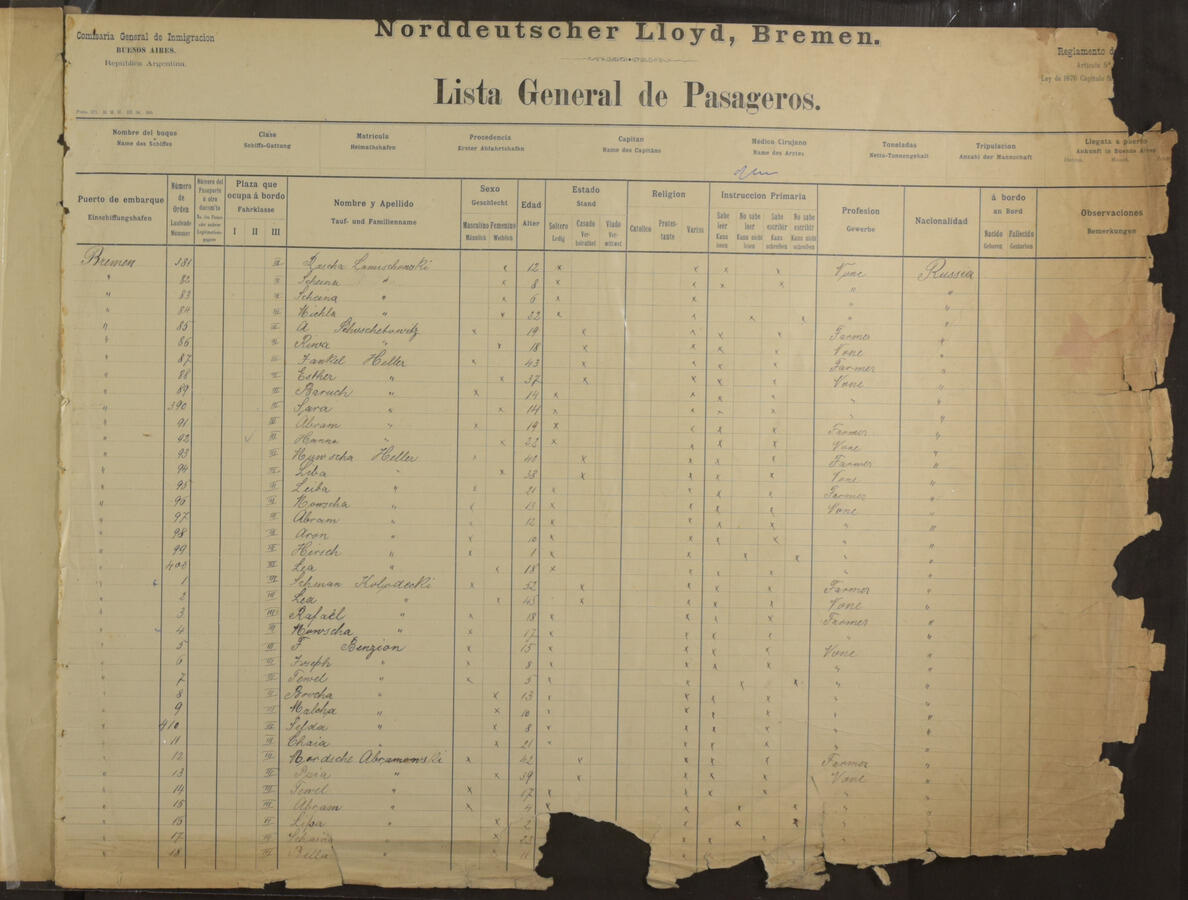 Comisaria General de Inmigracion
BUENOS AIRES.
República Argentina.
Norddeutscher Lloyd, Bremen.
Reglamento d
Articulo 5º
Ley de 1876 Capitulo 5
Lista General de Pasageros.
Nombre del buque
Name des Schiffes
Clase
Schiffs-Gattung
Matricula
Heimathshafen
Procedencia
Erster Abfahrtshafen
Capitan
Name des Capitäns
Médico Cirujano
Name des Arztes
Toneladas
Netto-Tonnengehalt
Tripulacion
Anzahl der Mannschaft
Llegata a puerto
Ankunft in Buenos Aires
Puerto de embarque
Einschiffungshafen
Número de Orden
Laufende Nummer
Número del Pasaporte
Plaza que ocupa á bordo
Fahrklasse
I II III
Nombre y Apellido
Tauf- und Familienname
Sexo
Geschlecht
Masculino Männlich
Femenino Weiblich
Edad
Alter
Estado
Stand
Soltero Ledig
Casado Verheirathet
Viudo Verwittwet
Religion
Catolico
Protestante
Varios
Instruccion Primaria
Sabe leer Kann lesen
No sabe leer Kann nicht lesen
Sabe escribir Kann schreiben
No sabe escribir Kann nicht schreiben
Profesion
Gewerbe
Nacionalidad
á bordo
an Bord
Nacido Geboren
Fallecido Gestorben
Observaciones
Bemerkungen
Bremen 381 III Lomischowski x 12 x x x x None Russia
" 82 III Scheina " x 8 x x x x " "
" 83 III Scheina " x 6 x x " "
" 84 III Michla " x 22 x x x " "
" 85 III A x 19 x x x x Farmer "
" 86 III Riwa " x 18 x x x x None "
" 87 III Jankel Heller x 43 x x x x Farmer "
" 88 III Esther " x 37 x x x x None "
" 89 III Baruch " x 14 x x x x " "
" 390 III Sara " x 14 x x x x " "
" 91 III Abram " x 19 x x x x Farmer "
" 92 III Hanna " x 22 x x x x None "
" 93 III Heller x 40 x x x x Farmer "
" 94 III Liba " x 38 x x x x None "
" 95 III Leiba " x 21 x x x x Farmer "
" 96 III Mowscha " x 13 x x x x None "
" 97 III Abram " x 12 x x x x " "
" 98 III Aron " x 10 x x x x " "
" 99 III Hirsch " x 1 x x x x " "
" 400 III Lea " x 18 x x x x " "
" 1 III Schman Kolodecki x 52 x x x x Farmer "
" 2 III Lea " x 45 x x x x None "
" 3 III Rafaël " x 18 x x x x Farmer "
" 4 III Mowscha " x 17 x x x x " "
" 5 III F Benzion x 15 x x x x None "
" 6 III Joseph " x 8 x x x x " "
" 7 III Tewel " x 5 x x x x " "
" 8 III Brocha " x 13 x x x x " "
" 9 III Malcha " x 10 x x x x " "
" 410 III Selda " x 8 x x x x " "
" 11 III Chaia " x 21 x x x x " "
" 12 III Mordsche Abramowski x 42 x x x x Farmer "
" 13 III " x 39 x x x x None "
" 14 III Tewel " x 17 x x x x " "
" 15 III Abram " x 4 x x x x " "
" 15 III Liba " x 2 x x x " "
" 17 III " x 23 x x x " "
" 18 III Bella " x 11